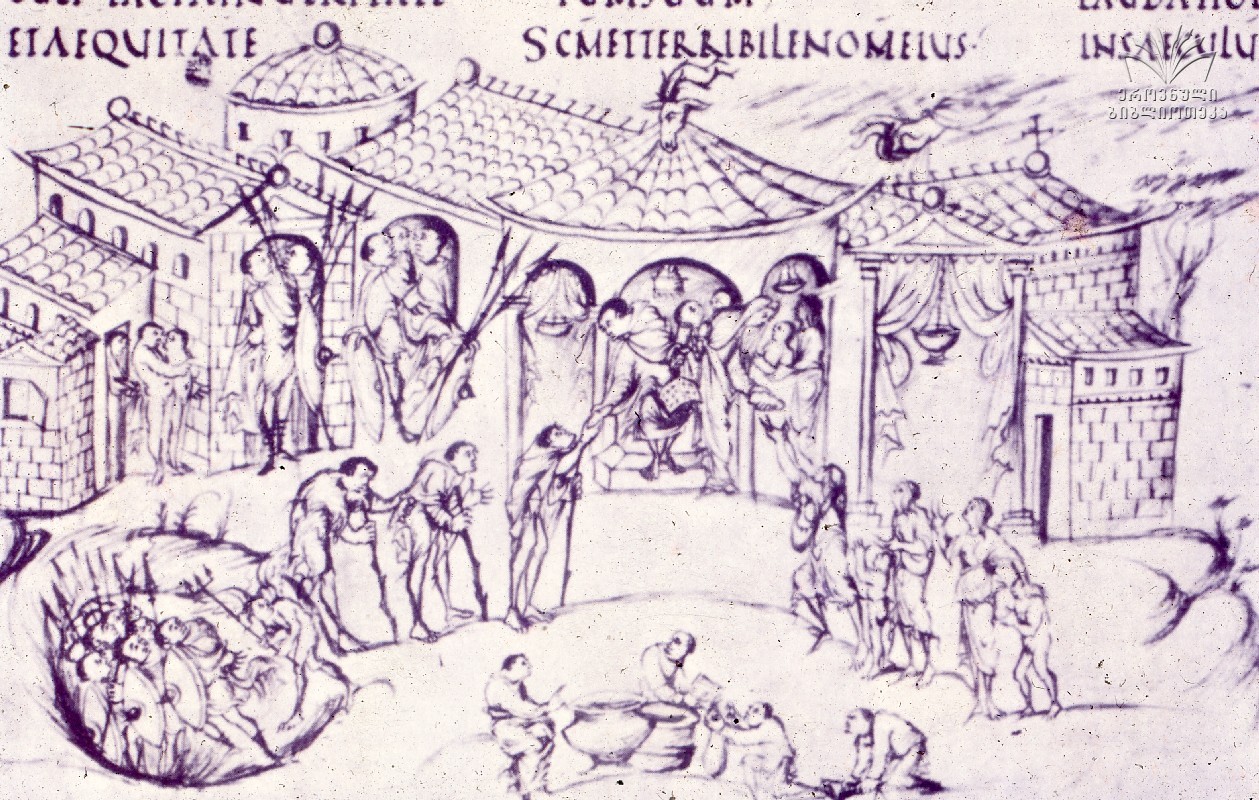 ETAEQUITATE
SCMETTERRIBILENOMEIUS·
INSAECULU
ეროვნული
ბიბლიოთეკა